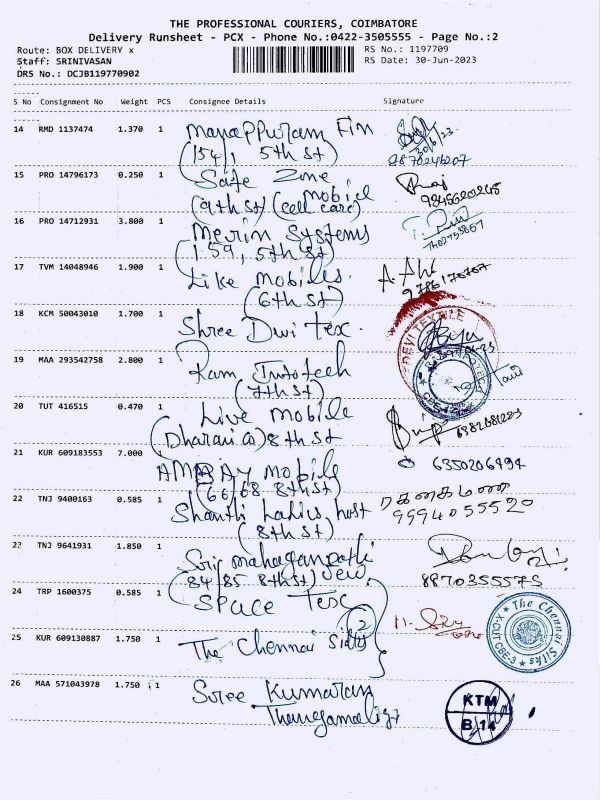 THE PROFESSIONAL COURIERS, COIMBATORE
Delivery Runsheet - PCX - Phone No.:0422-3505555 - Page No.:2
Route: BOX DELIVERY x
RS No.: 1197709
Staff: SRINIVASAN
RS Date: 30-Jun-2023
DRS No.: DCJB119770902
S No Consignment No Weight PCS Consignee Details Signature
14 RMD 1137474 1.370 1 Manappuram Fin
(154/1, 5th St)
15 PRO 14796173 0.250 1 Safe Zone
Mobiel
(9th St) (cell care)
16 PRO 14712931 3.800 1 Merin Systems
(159, 5th St)
17 TVM 14048946 1.900 1 Like Mobiles.
(6th St)
18 KCM 50043010 1.700 1 Shree Dwi tex.
DEVI TEXTILE
19 MAA 293542758 2.800 1 Ram Infotech
(7th St)
20 TUT 416515 0.470 1 Live Mobile
8th St
21 KUR 609183553 7.000 1 Mobile
6350206494
(66/68 8th St)
22 TNJ 9400163 0.585 1 Shanthi Ladies host
9994055520
(8th St)
23 TNJ 9641931 1.850 1 Sri mahaganpathi
(84/85 8th St)
8870355575
24 TRP 1600375 0.585 1 Space Tex
(2)
The Chennai Silks
X-CUT CBE-3
25 KUR 609130887 1.750 1 The Chennai Silks
26 MAA 571043978 1.750 1 Sree Kumaran
Thangamaligi
KTM
B 14